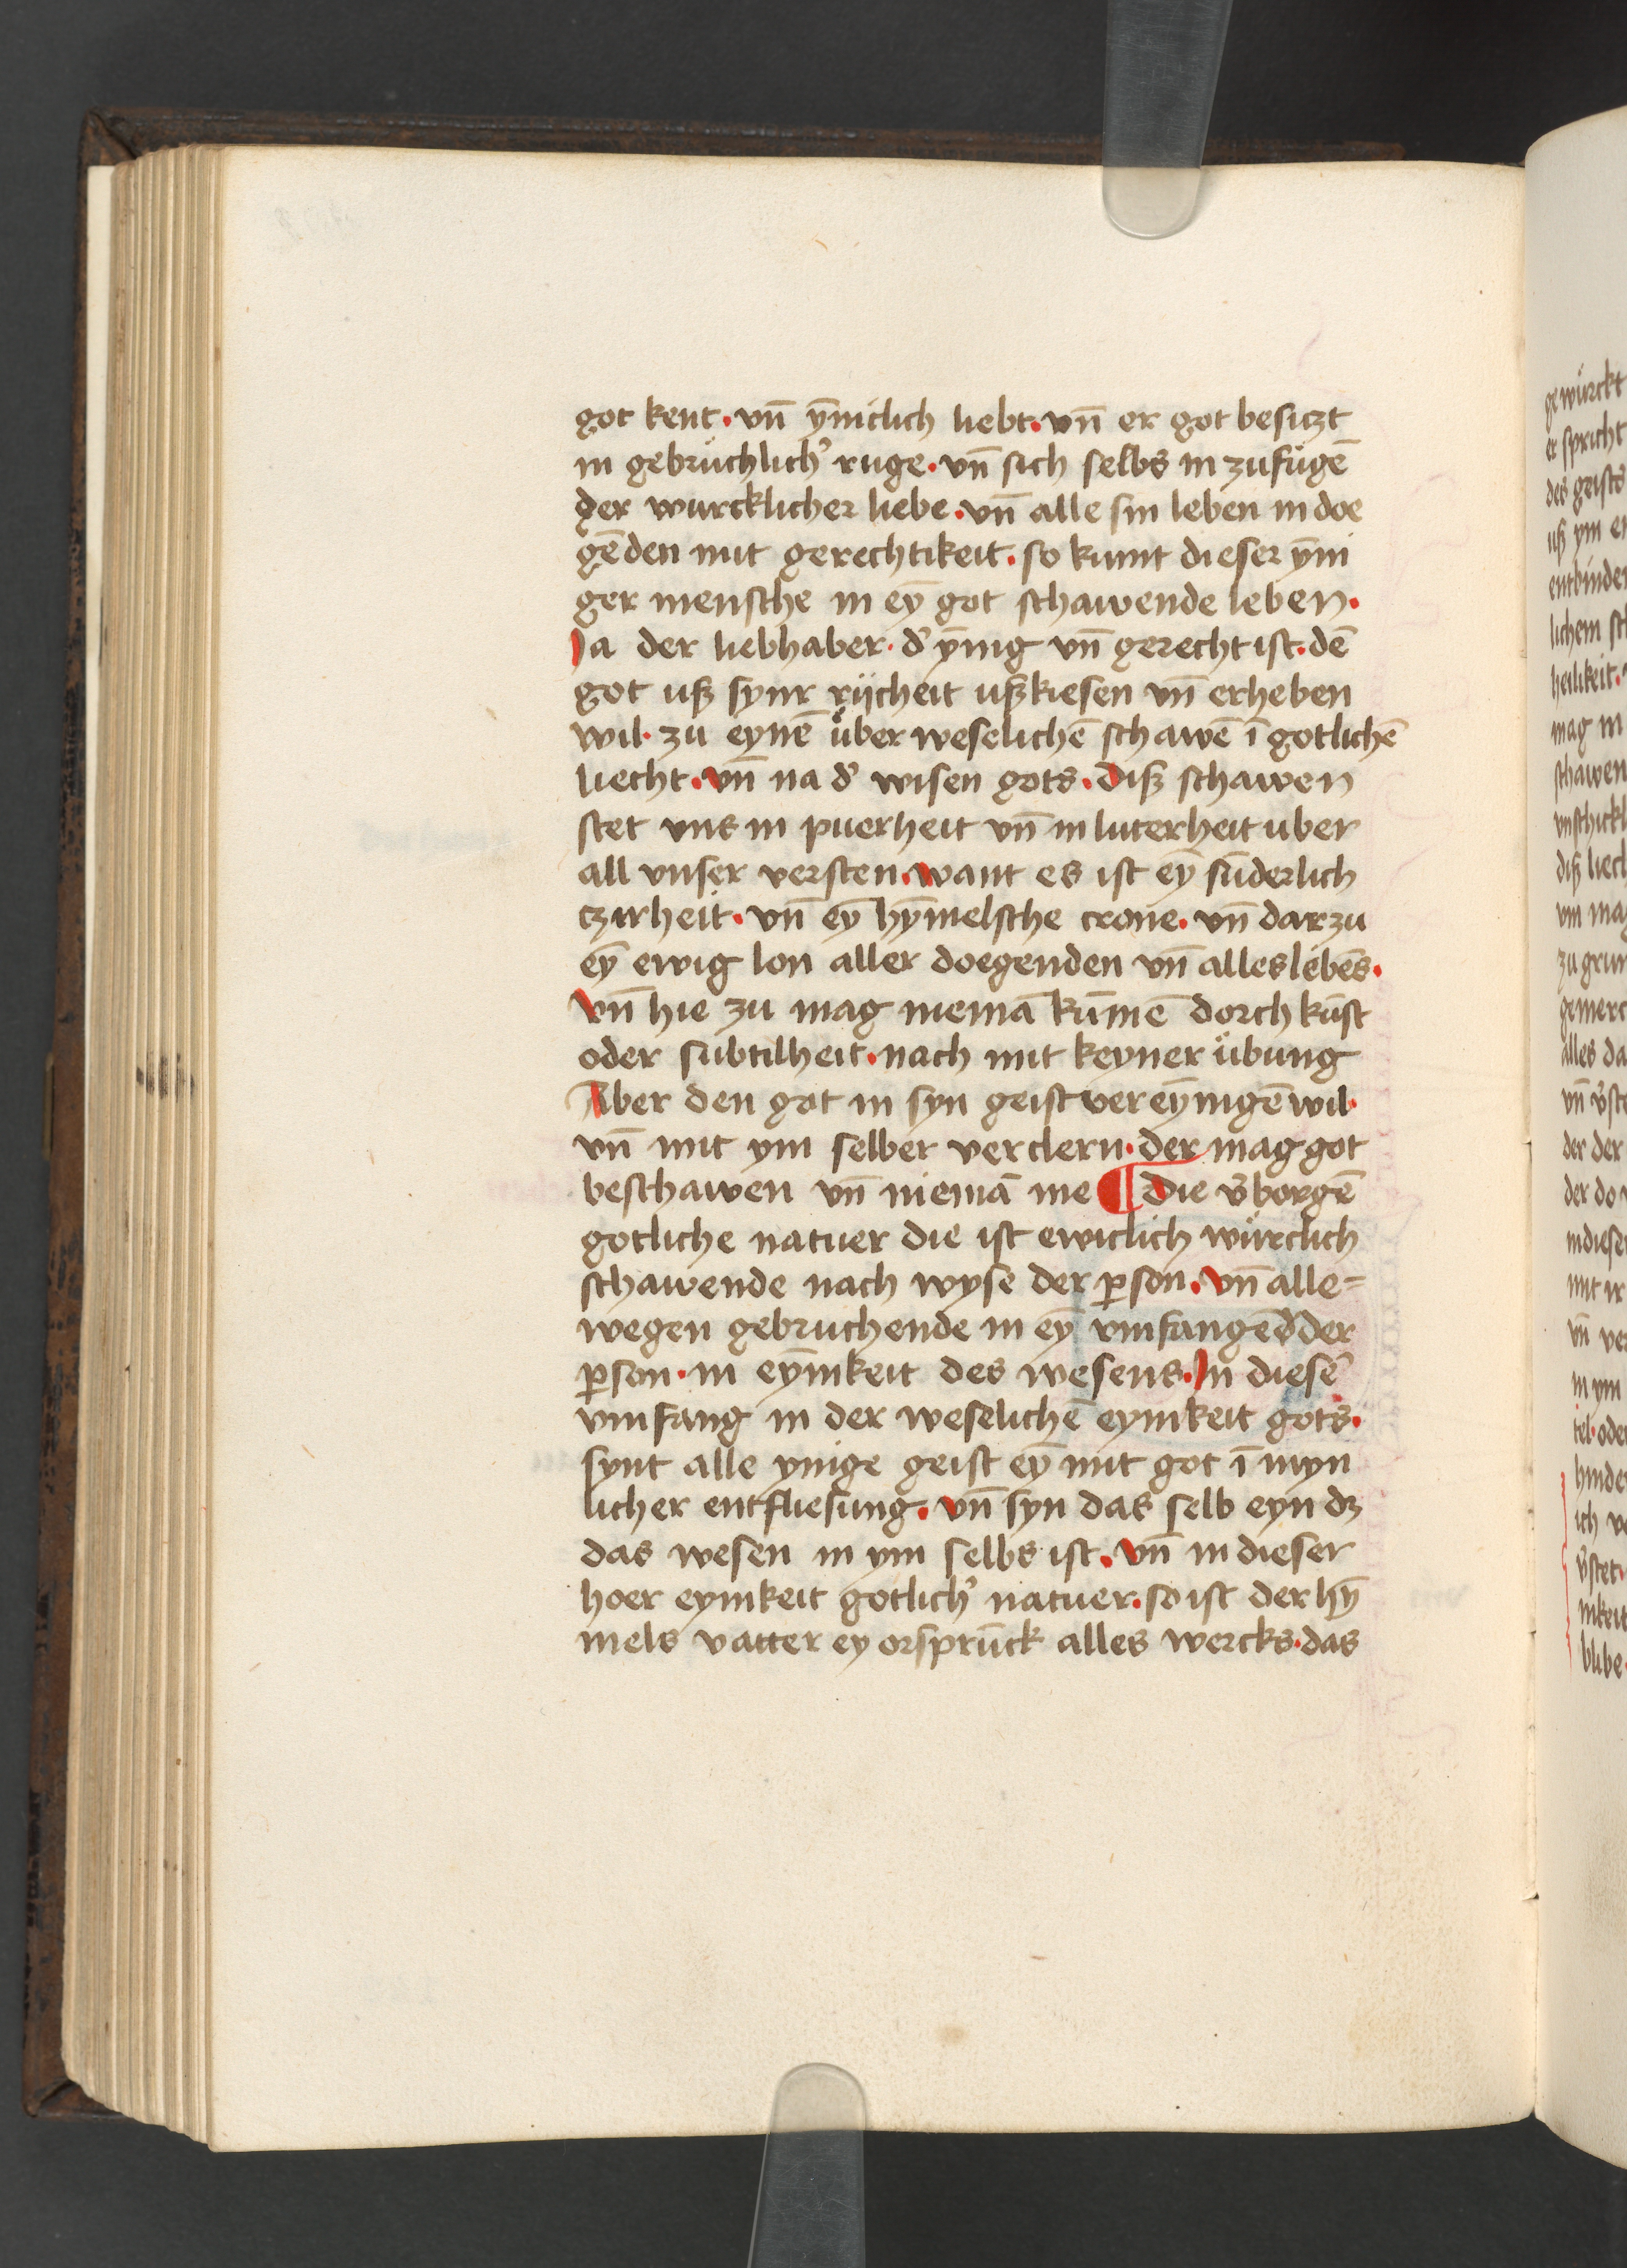 got kent · vn̄ ȳniclich liebt · vn̄ er got besiczt
in gebrüchlich' ruge · vn̄ sich selbs in zufügē
der wurcklicher liebe · vn̄ alle sin leben in doe
gēden mit gerechtikeit · so kumt dieser ȳni
ger mensche in eȳ got schawende leben ·
Ja der liebhaber · d' ȳnig vn̄ gerecht ist · dē
got uß synr rijcheit ußkiesen vn̄ erheben
wil · zu eynē über weselichē schawē ī gotlichē
liecht · vn̄ na d' wisen gots · Diß schawen
stet vns in puerheit vn̄ in luterheit uber
all vnser versten · want es ist eȳ sūderlich
czirheit · vn̄ eȳ hȳmelsche crone · vn̄ dar zu
eȳ ewig lon aller doegenden vn̄ alles lebēs ·
Vn̄ hie zu mag niemā kūmē dorch kūst
oder subtilheit · nach mit keyner übung
Aber den got in syn geist vereȳnigē wil ·
vn̄ mit ym selber verclern · der mag got
beschawen vn̄ niemā me ¶ Die v̄borgē
gotliche natuer die ist ewiclich würclich
schawende nach wyse der ꝑson · Vn̄ alle=
wegen gebruchende in eȳ vmfangēd der
ꝑson · in eȳnikeit des wesens · In diesē
vmfang in der weselichē eynikeit gots ·
synt alle ynige geist eȳ mit got ī myn
licher entfliesung · vn̄ syn das selb eyn dz
das wesen in ym selbs ist · Vn̄ in dieser
hoer eynikeit gotlich' natuer · so ist der hȳ
mels vatter ey orsprūck alles wercks · das
gewürckt
er spricht
des geists
uß ym er
entbinden
heilikeit ·
mag in
schawen
diß liech
vn̄ v̄ste
der der
mit ir
in ym
ich ve
v̄stet ·
nikeit
blibe ·